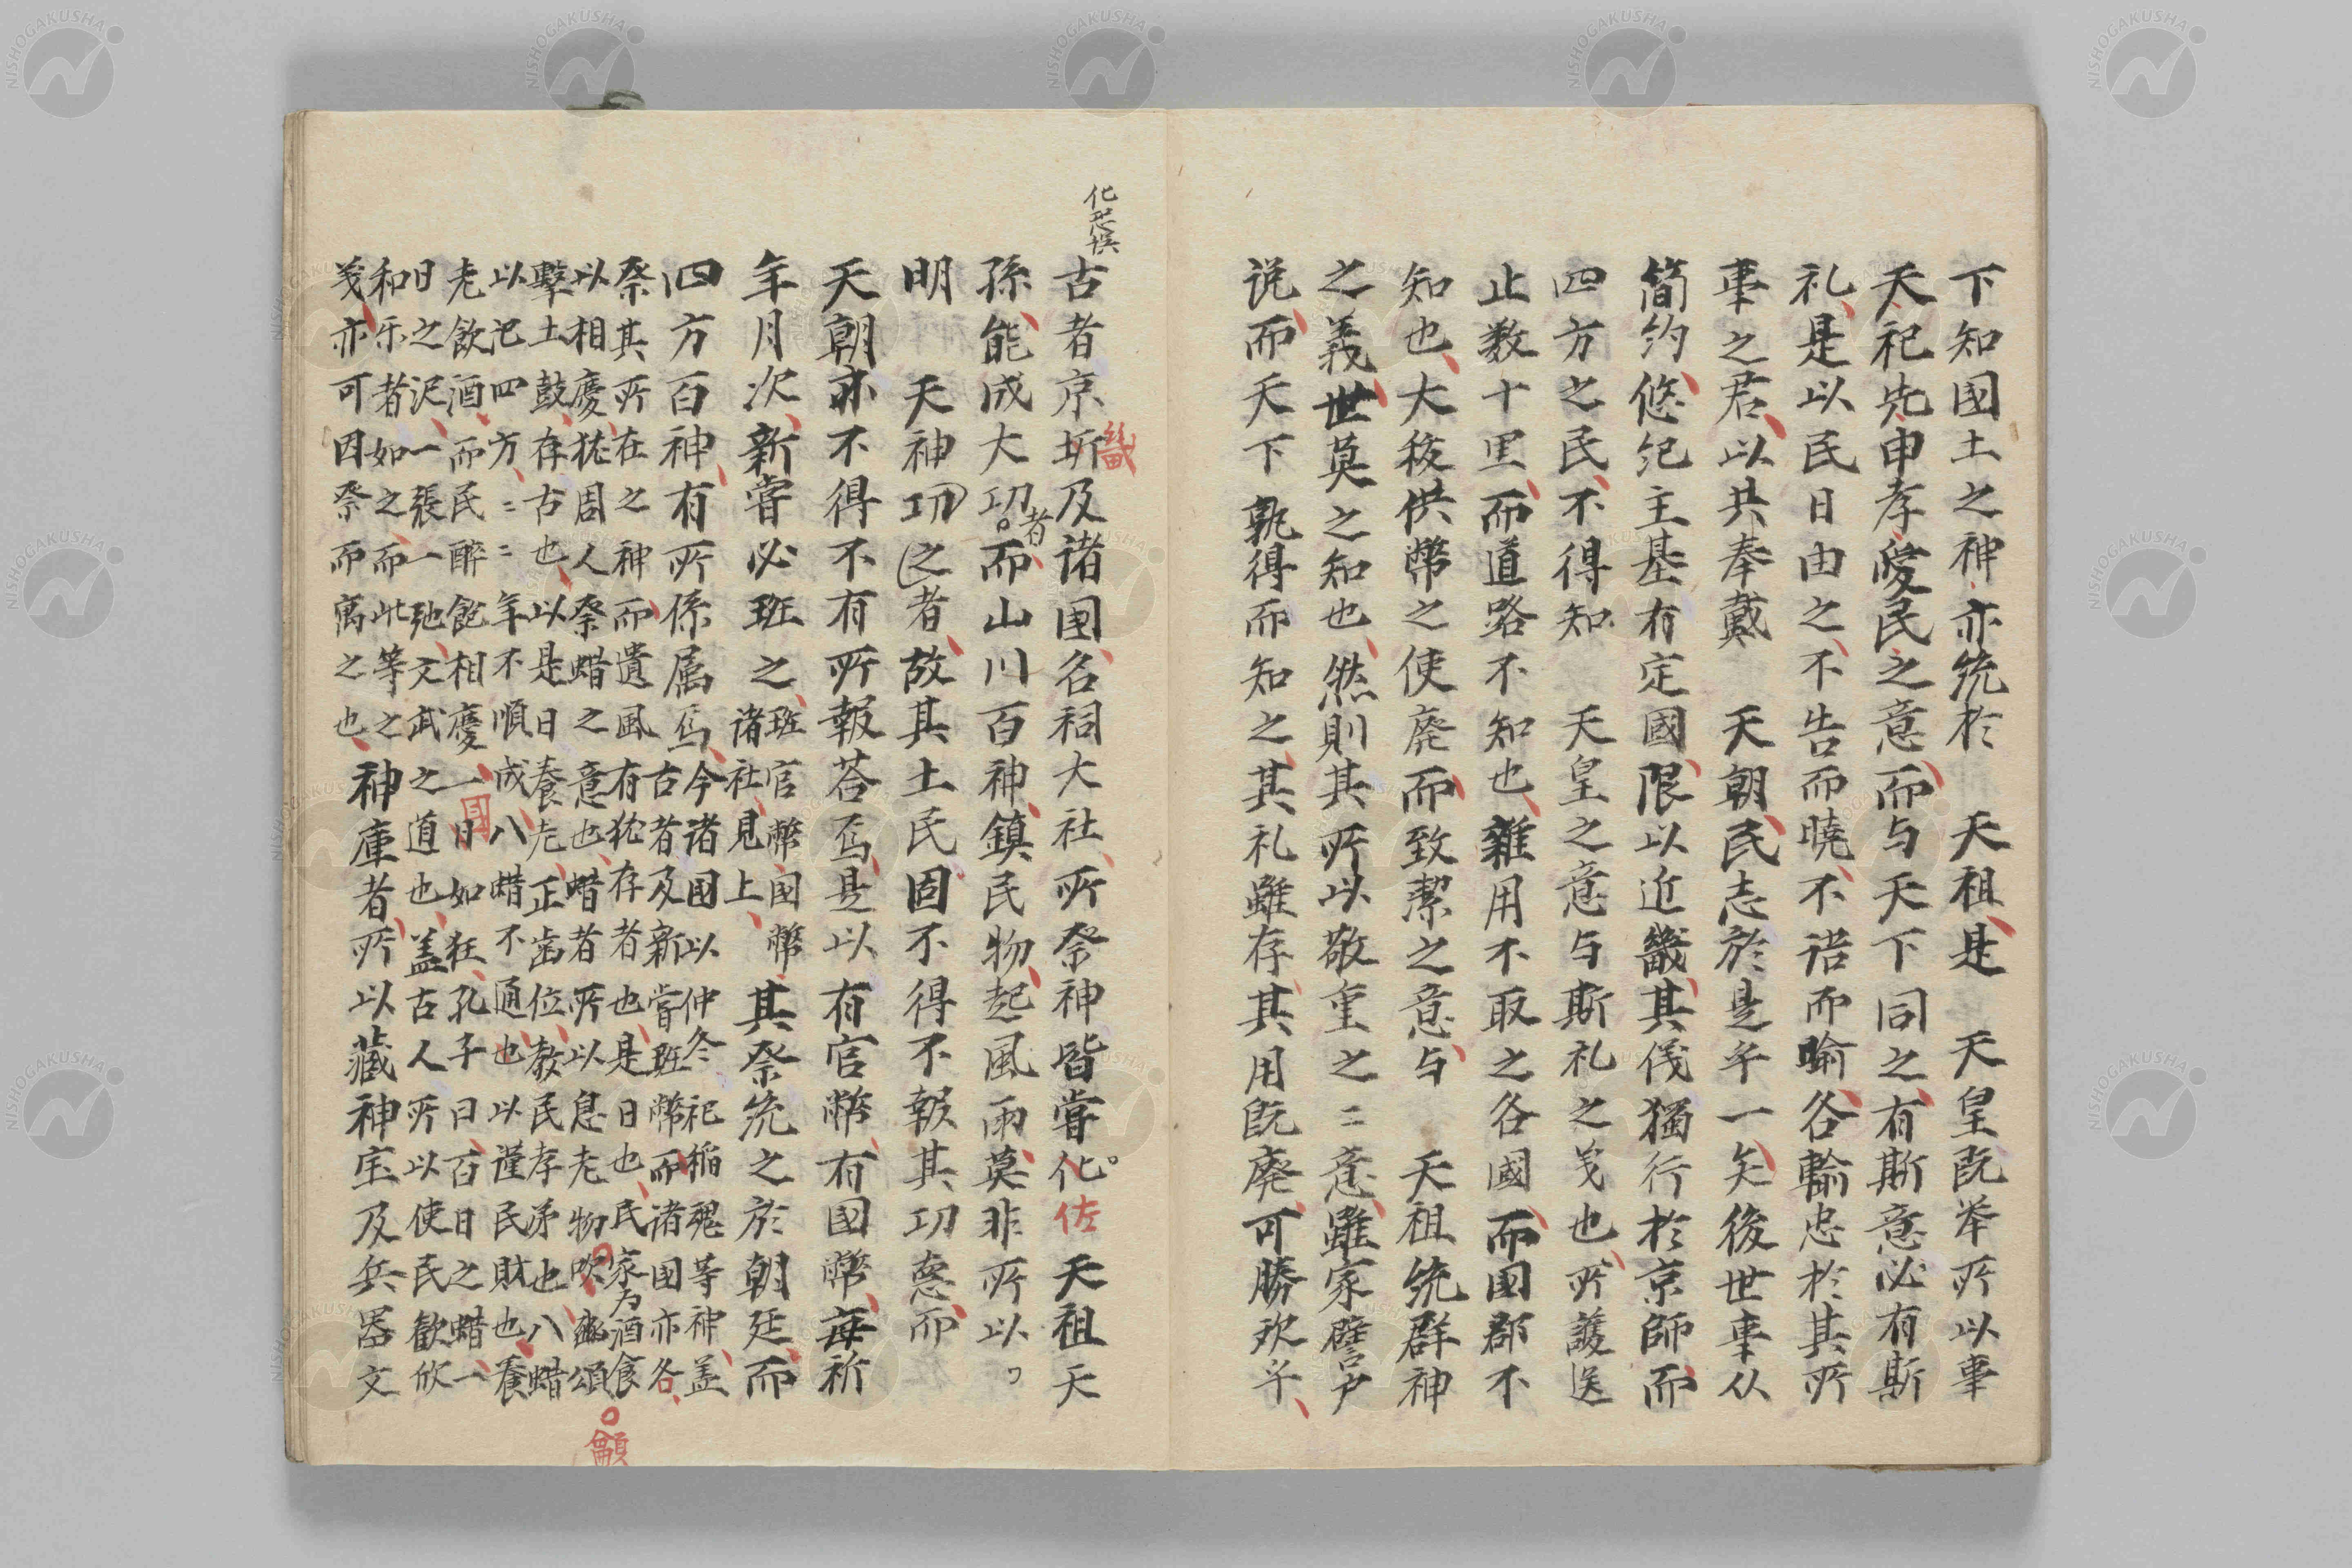 下知國土之神亦統於　天祖是　天皇既挙所以事
天祀先申孝愛民之意而与天下同之有斯意必有斯
礼是以民日由之不告而暁不語而喩各輸忠於其所
事之君以共奉戴　天朝民志於是乎一矣後世事从
簡約悠紀主基有定國限以近畿其儀獨行於京師而
四方之民不得知　天皇之意与斯礼之義也所護送
止数十里而道路不知也雜用不取之各國而国郡不
知也大祓供幣之使廃而致潔之意与　天祖統群神
之義世莫之知也然則其所以敬重之〻意雖家譬戸
说而天下孰得而知之其礼雖存其用既廃可勝欤乎
化恐悞
古者京圻及诸国名祠大社所祭神皆甞化天祖天
畿
佐
孫能成大功而山川百神鎮民物起風雨莫非所以
者
明　天神功之者故其土民固不得不報其功悳而
天朝亦不得不有所報荅焉是以有官幣有國幣每祈
年月次新甞必班之班官幣国幣
诸社見上其祭統之於朝廷而
四方百神有所係属焉今诸国以仲冬祀稲魂等神盖
古者及新甞班幣而诸国亦各
祭其所在之神而遺風有犹存者也是日也民家為酒食
以相慶犹周人祭蜡之意也蜡者所以息老物吹豳頌
龥
擊土鼓存古也以是日養老正歯位教民孝弟也八蜡
以祀四方〻〻年不順成八蜡不通也以謹民財也養
老飲酒而民醉飽相慶一日如狂孔子曰百日之蜡一
國
日之泥一張一弛文武之道也盖古人所以使民歓欣
和乐者如之而此等之
義亦可因祭而寓之也神庫者所以藏神宝及兵器文
NISHOGAKUSHA